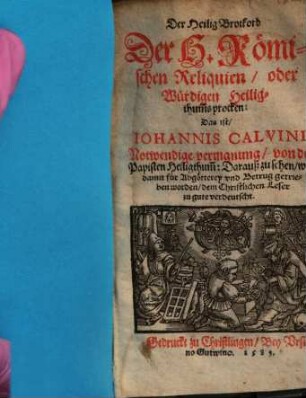 Der Heilig Brotkorb
Der H. Römi-
schen Reliquien / oder
Würdigen Heilig-
thumbs procken:
Das ist /
IOHANNIS CALVINI
Notwendige vermanung / von der
Papisten Heiligthum: Darauß zu sehen / w
damit für Abgötterey vnd Betrug getrie-
ben worden / dem Christlichen Leser
zu gute verdeutscht.
Gedruckt zu Christlingen / Bey Vrsi
no Gutwino. 1583.